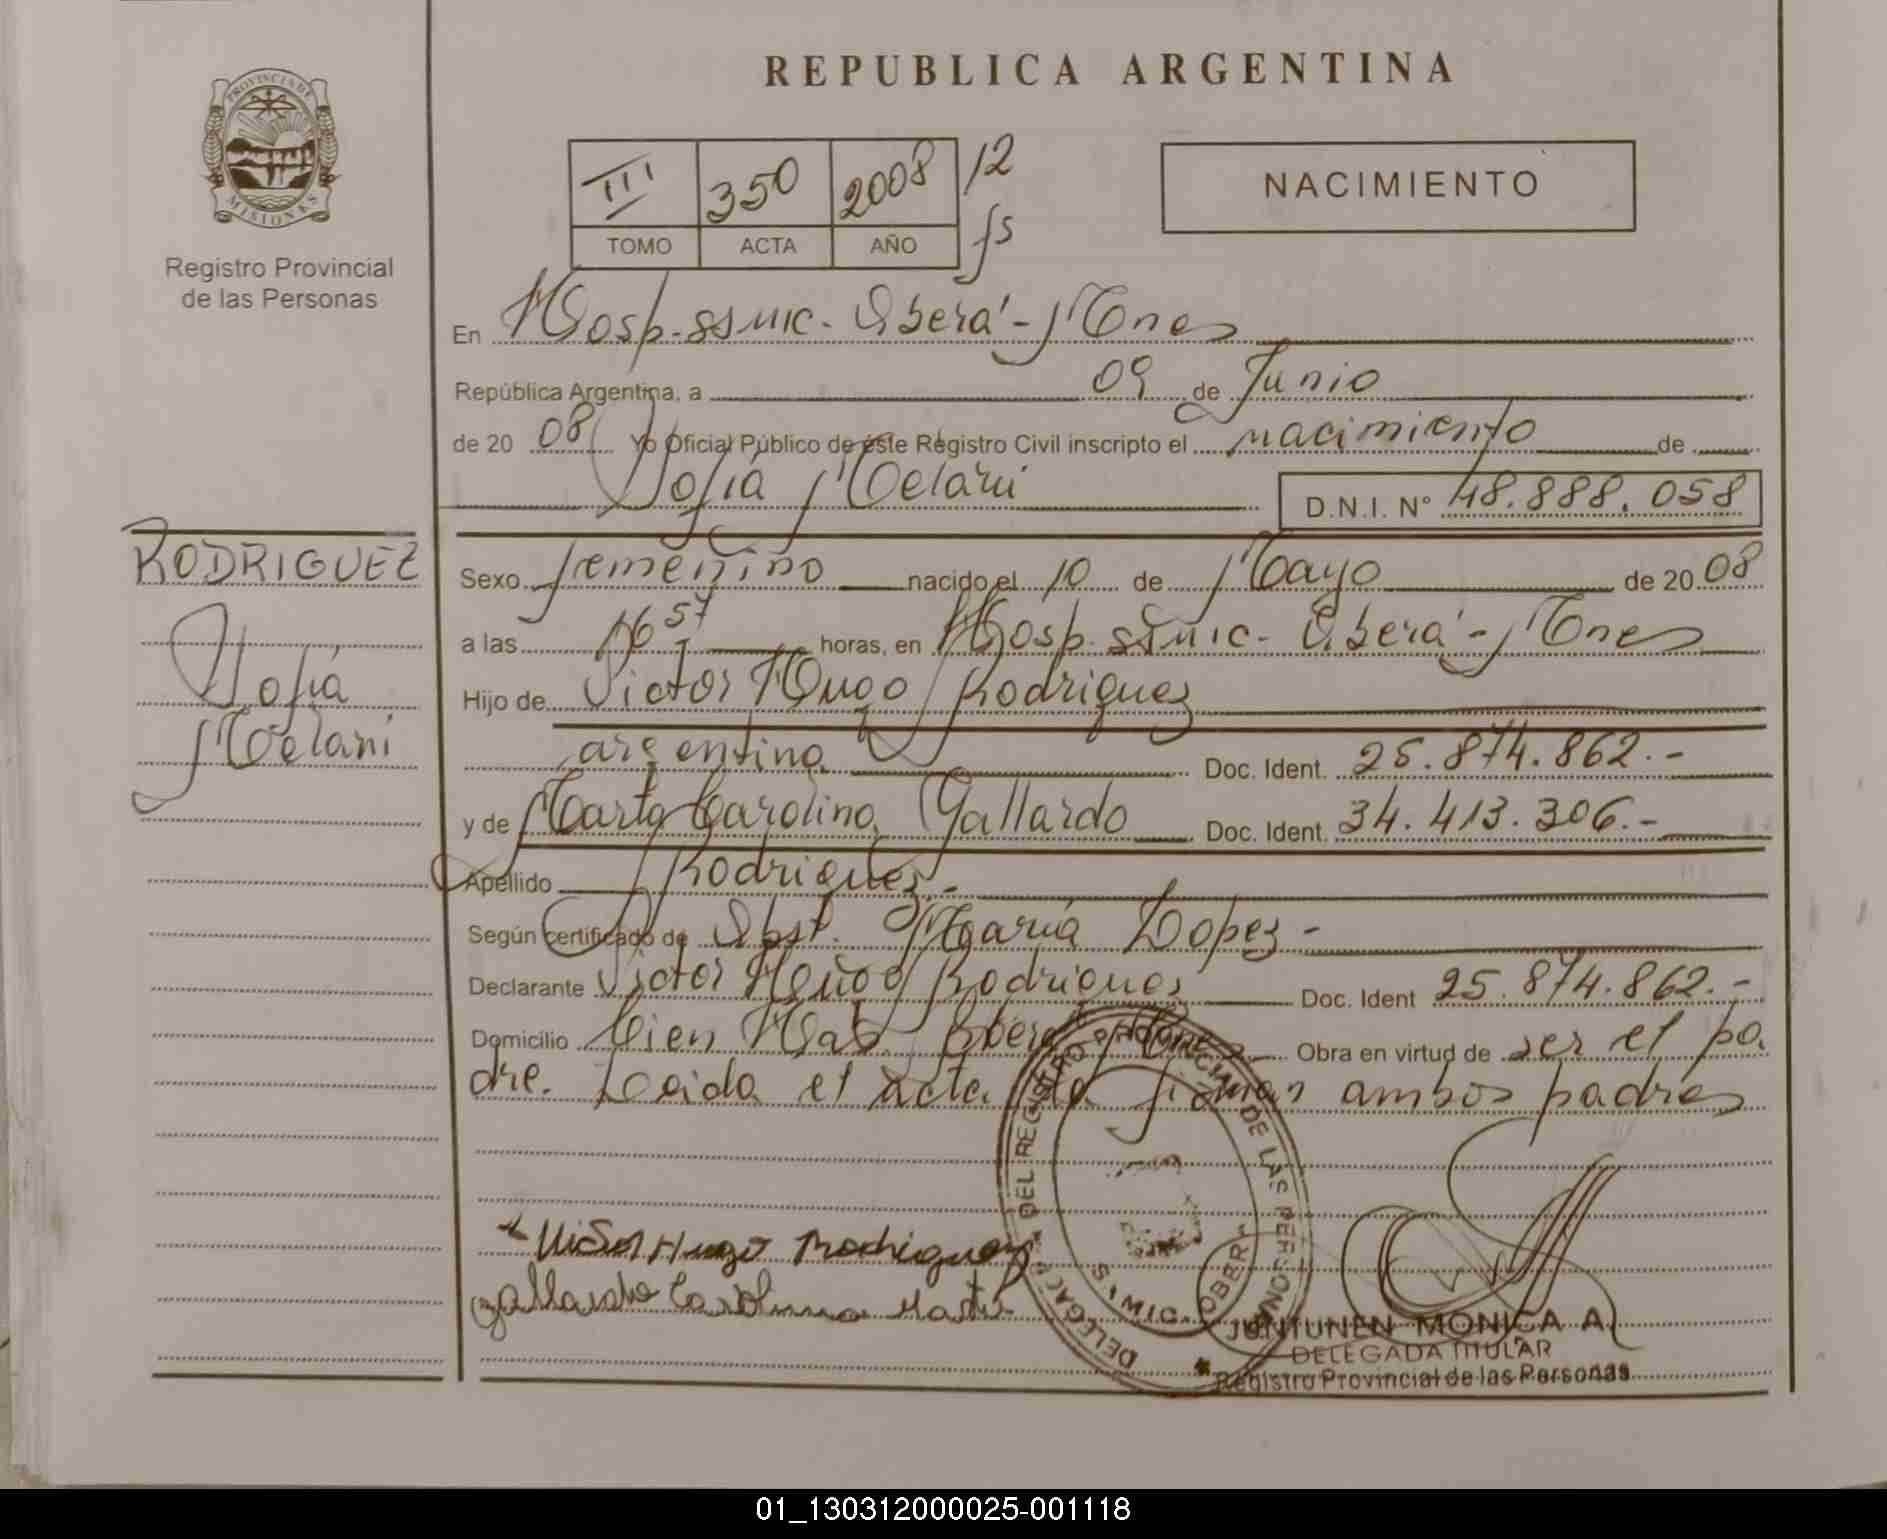 REPUBLICA ARGENTINA
PROVINCIA DE MISIONES
Registro Provincial
de las Personas
III 350 2008 12
TOMO ACTA AÑO fs
NACIMIENTO
En Hosp. SSMIC - Oberá - Mnes
República Argentina, a 09 de Junio
de 2008 Yo Oficial Público de éste Registro Civil inscripto el nacimiento de
Sofia Melani D.N.I. N° 48.888.058
RODRIGUEZ
Sofia
Melani
Sexo femenino nacido el 10 de Mayo de 2008
a las 16 57 horas, en Hosp. SSMIC - Oberá - Mnes
Hijo de Victor Hugo Rodriguez
argentina Doc. Ident. 25.874.862.-
y de Marta Carolina Gallardo Doc. Ident. 34.413.306.-
Apellido Rodriguez.-
Según certificado de Obst. María Lopez -
Declarante Victor Hugo Rodriguez Doc. Ident 25.874.862.-
Domicilio Cien Hab. Oberá Mnes Obra en virtud de ser el pa
dre. Leida el acta la firman ambos padres
Victor Hugo Rodriguez
Gallardo Carolina Marta
DELEGACION DEL REGISTRO PROVINCIAL DE LAS PERSONAS
S.S.MIC. OBERA
JUNTUNEN MONICA A.
DELEGADA TITULAR
Registro Provincial de las Personas
01_130312000025-001118